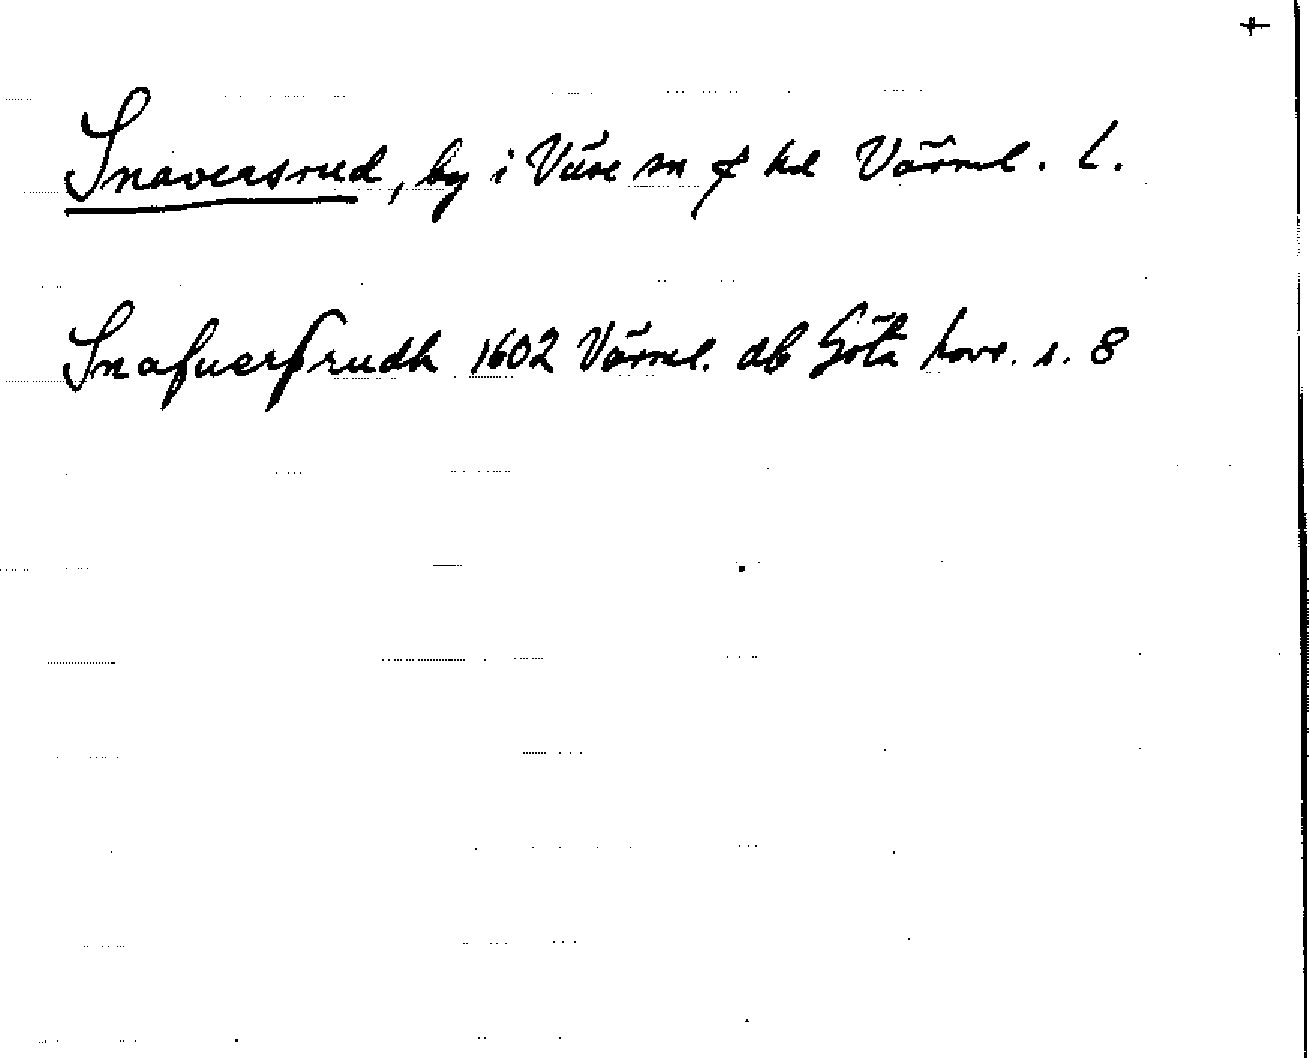 +
Snaversrud, by i Väse sn & hd Värml. L.
Snafuerſrudh 1602 Värml. db Göta hovr. s. 8